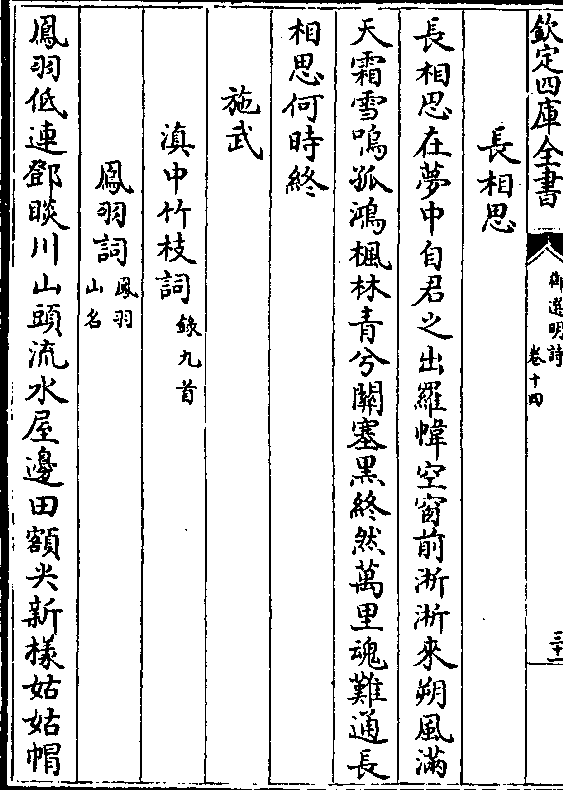 欽定四庫全書
御選明詩
卷十四
三十一
長相思
長相思在夢中自君之出羅幃空窗前淅淅來朔風滿
天霜雪鳴孤鴻楓林青兮關塞黑終然萬里魂難通長
相思何時終
施武
滇中竹枝詞錄九首
鳳羽詞鳳羽
山名
鳳羽低連鄧睒川山頭流水屋邊田額尖新樣姑姑帽